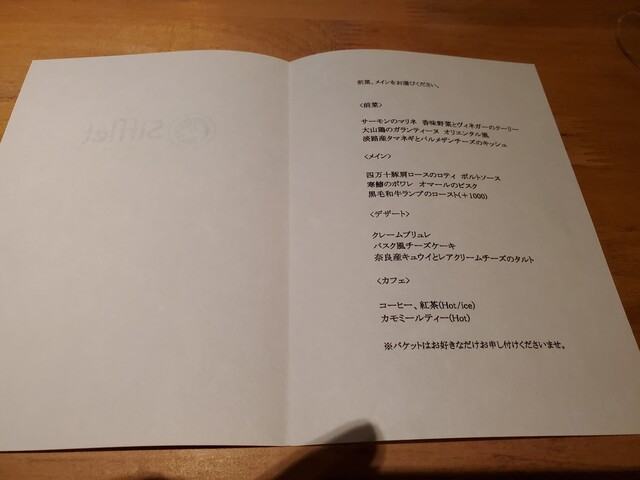 前菜、メインをお選びください。
<前菜>
サーモンのマリネ 香味野菜とヴィネガーのクーリー
大山鶏のガランティーヌ オリエンタル風
淡路産タマネギとパルメザンチーズのキッシュ
<メイン>
四万十豚肩ロースのロティ ポルトソース
寒鰆のポワレ オマールのビスク
黒毛和牛ランプのロースト(+1000)
<デザート>
クレームブリュレ
バスク風チーズケーキ
奈良産キュウイとレアクリームチーズのタルト
<カフェ>
コーヒー、紅茶(Hot/ice)
カモミールティー(Hot)
※バケットはお好きなだけお申し付けくださいませ。
Sifflet